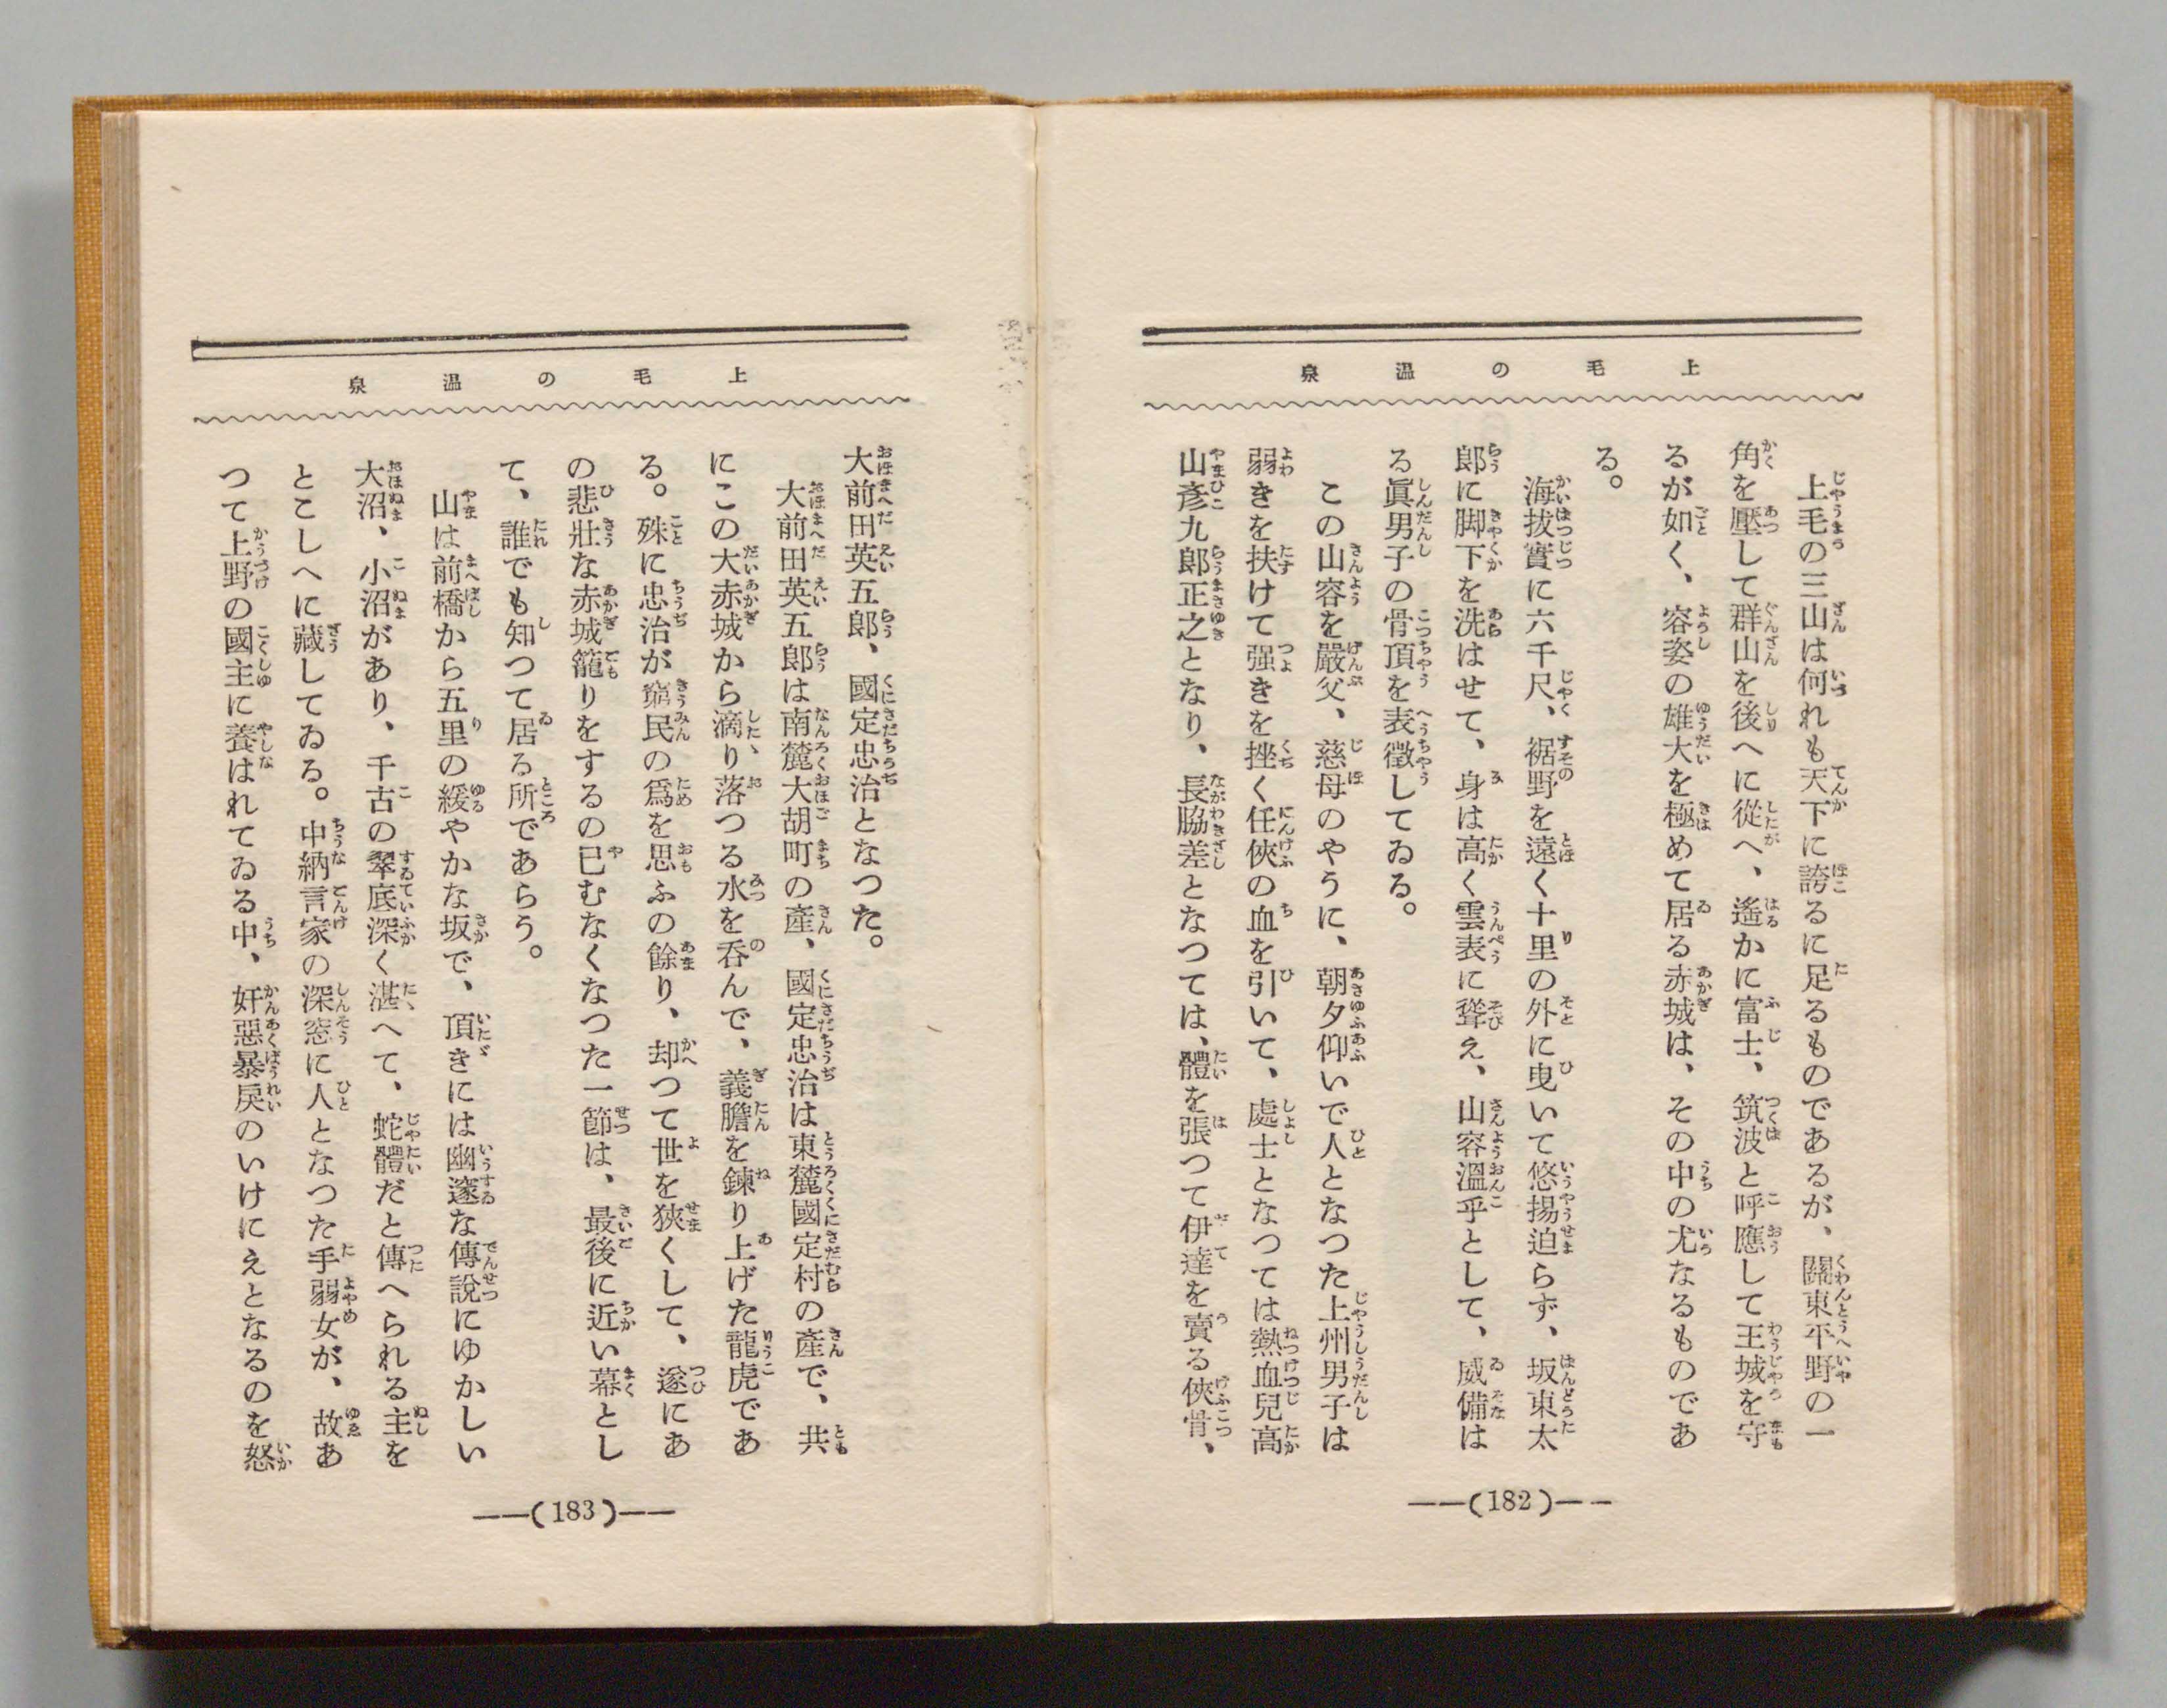 上毛の温泉
上毛の三山は何れも天下に誇るに足るものであるが、關東平野の一
角を壓して群山を後へに從へ、遙かに富士、筑波と呼應して王城を守
るが如く、容姿の雄大を極めて居る赤城は、その中の尤なるものであ
る。
海拔實に六千尺、裾野を遠く十里の外に曳いて悠揚迫らず、坂東太
郎に脚下を洗はせて、身は高く雲表に聳え、山容溫乎として、威備は
る眞男子の骨頂を表徵してゐる。
この山容を嚴父、慈母のやうに、朝夕仰いで人となつた上州男子は
弱きを扶けて强きを挫く任俠の血を引いて、處士となつては熱血兒高
山彥九郎正之となり、長脇差となつては、體を張つて伊達を賣る俠骨、
(182)
上毛の温泉
大前田英五郎、國定忠治となつた。
大前田英五郎は南麓大胡町の產、國定忠治は東麓國定村の產で、共
にこの大赤城から滴り落つる水を呑んで、義膽を鍊り上げた龍虎であ
る。殊に忠治が窮民の爲を思ふの餘り、却つて世を狹くして、遂にあ
の悲壯な赤城籠りをするの已むなくなつた一節は、最後に近い幕とし
て、誰でも知つて居る所であらう。
山は前橋から五里の緩やかな坂で、頂きには幽邃な傳說にゆかしい
大沼、小沼があり、千古の翠底深く湛へて、蛇體だと傳へられる主を
とこしへに藏してゐる。中納言家の深窓に人となつた手弱女が、故あ
つて上野の國主に養はれてゐる中、奸惡暴戾のいけにえとなるのを怒
(183)